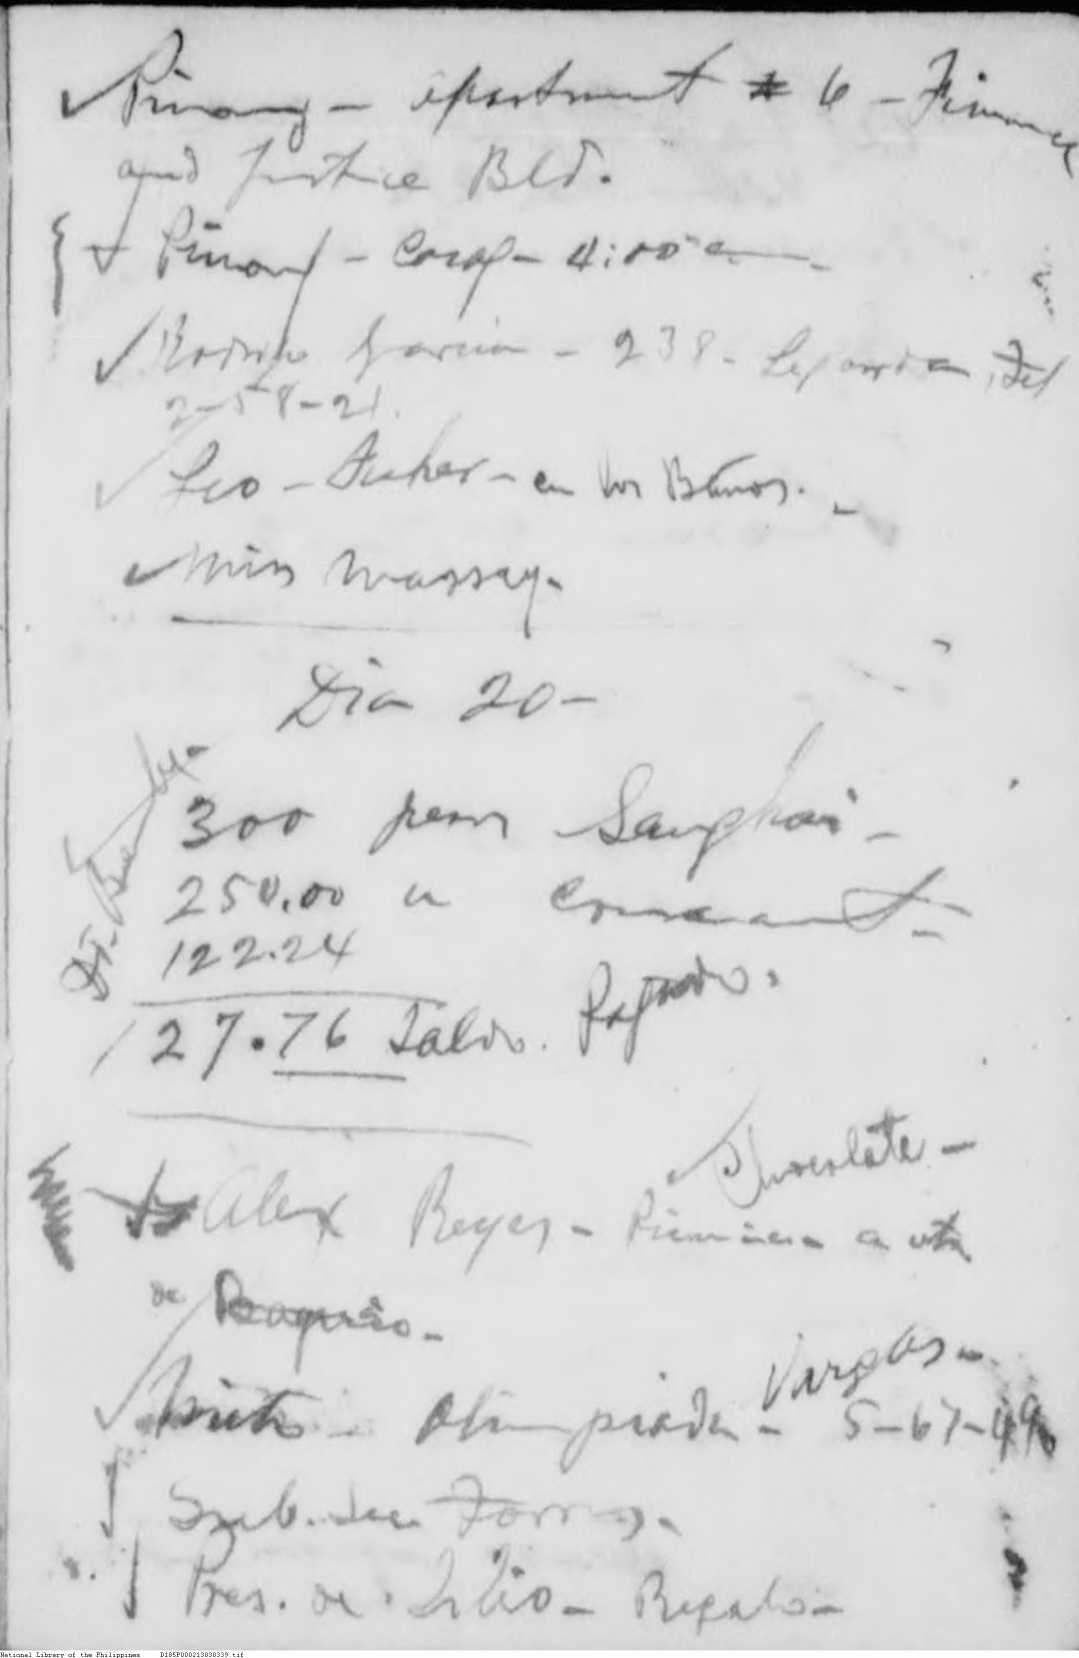 Pinong - apartment # 6 - Finance
and Justice Bld.
Pinong - Corp - 4:00
Rodrigo Garcia - 238 - Legarda, Tel
2-58-21.
Leo - Fisher - en los Baños. -
Miss Massey.
Dia 20 -
300 pesos Sanghai -
250.00 en
122.24
127.76 Saldo. Pagado.
Chocolate -
Alex Reyes - a
de Baguio -
Vargas -
Olimpiada - 5-67-49
Sub. Sec Torres -
Pres. de Lilio - Regalo -
National Library of the Philippines D185P000213830339.tif